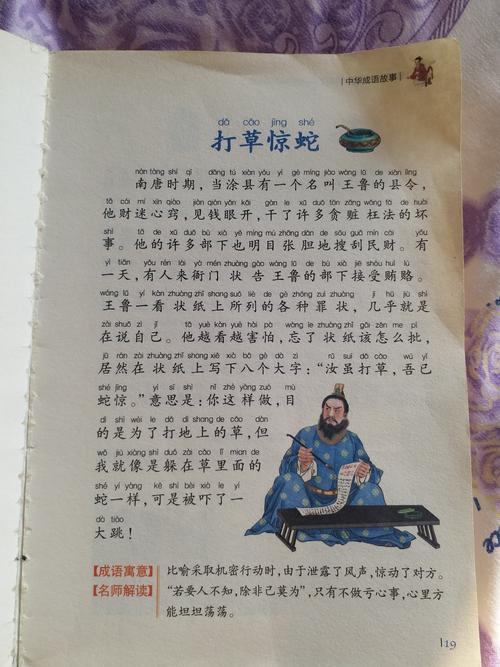 中华成语故事
dǎ cǎo jīng shé
打草惊蛇
nán táng shí qī dāng tú xiàn yǒu yí gè míng jiào wáng lǔ de xiàn lìng
南唐时期，当涂县有一个名叫王鲁的县令，
tā cái mí xīn qiào jiàn qián yǎn kāi gàn le xǔ duō tān zāng wǎng fǎ de huài
他财迷心窍，见钱眼开，干了许多贪赃枉法的坏
shì tā de xǔ duō bù xià yě míng mù zhāng dǎn de sōu guā mín cái yǒu
事。他的许多部下也明目张胆地搜刮民财。有
yì tiān yǒu rén lái yá mén zhuàng gào wáng lǔ de bù xià jiē shòu huì lù
一天，有人来衙门状告王鲁的部下接受贿赂。
wáng lǔ yí kàn zhuàng zhǐ shang suǒ liè de gè zhǒng zuì zhuàng jī hū jiù shì
王鲁一看状纸上所列的各种罪状，几乎就是
zài shuō zì jǐ tā yuè kàn yuè hài pà wàng le zhuàng zhǐ gāi zěn me pī
在说自己。他越看越害怕，忘了状纸该怎么批，
jū rán zài zhuàng zhǐ shang xiě xià bā gè dà zì rǔ suī dǎ cǎo wú yǐ
居然在状纸上写下八个大字：“汝虽打草，吾已
shé jīng yì si shì nǐ zhè yàng zuò mù
蛇惊。”意思是：你这样做，目
dì shì wèi le dǎ dì shang de cǎo dàn
的是为了打地上的草，但
wǒ jiù xiàng shì duǒ zài cǎo lǐ miàn de
我就像是躲在草里面的
shé yí yàng kě shì bèi xià le yí
蛇一样，可是被吓了一
dà tiào
大跳！
【成语寓意】 比喻采取机密行动时，由于泄露了风声，惊动了对方。
【名师解读】 “若要人不知，除非己莫为”，只有不做亏心事，心里方
能坦坦荡荡。
119